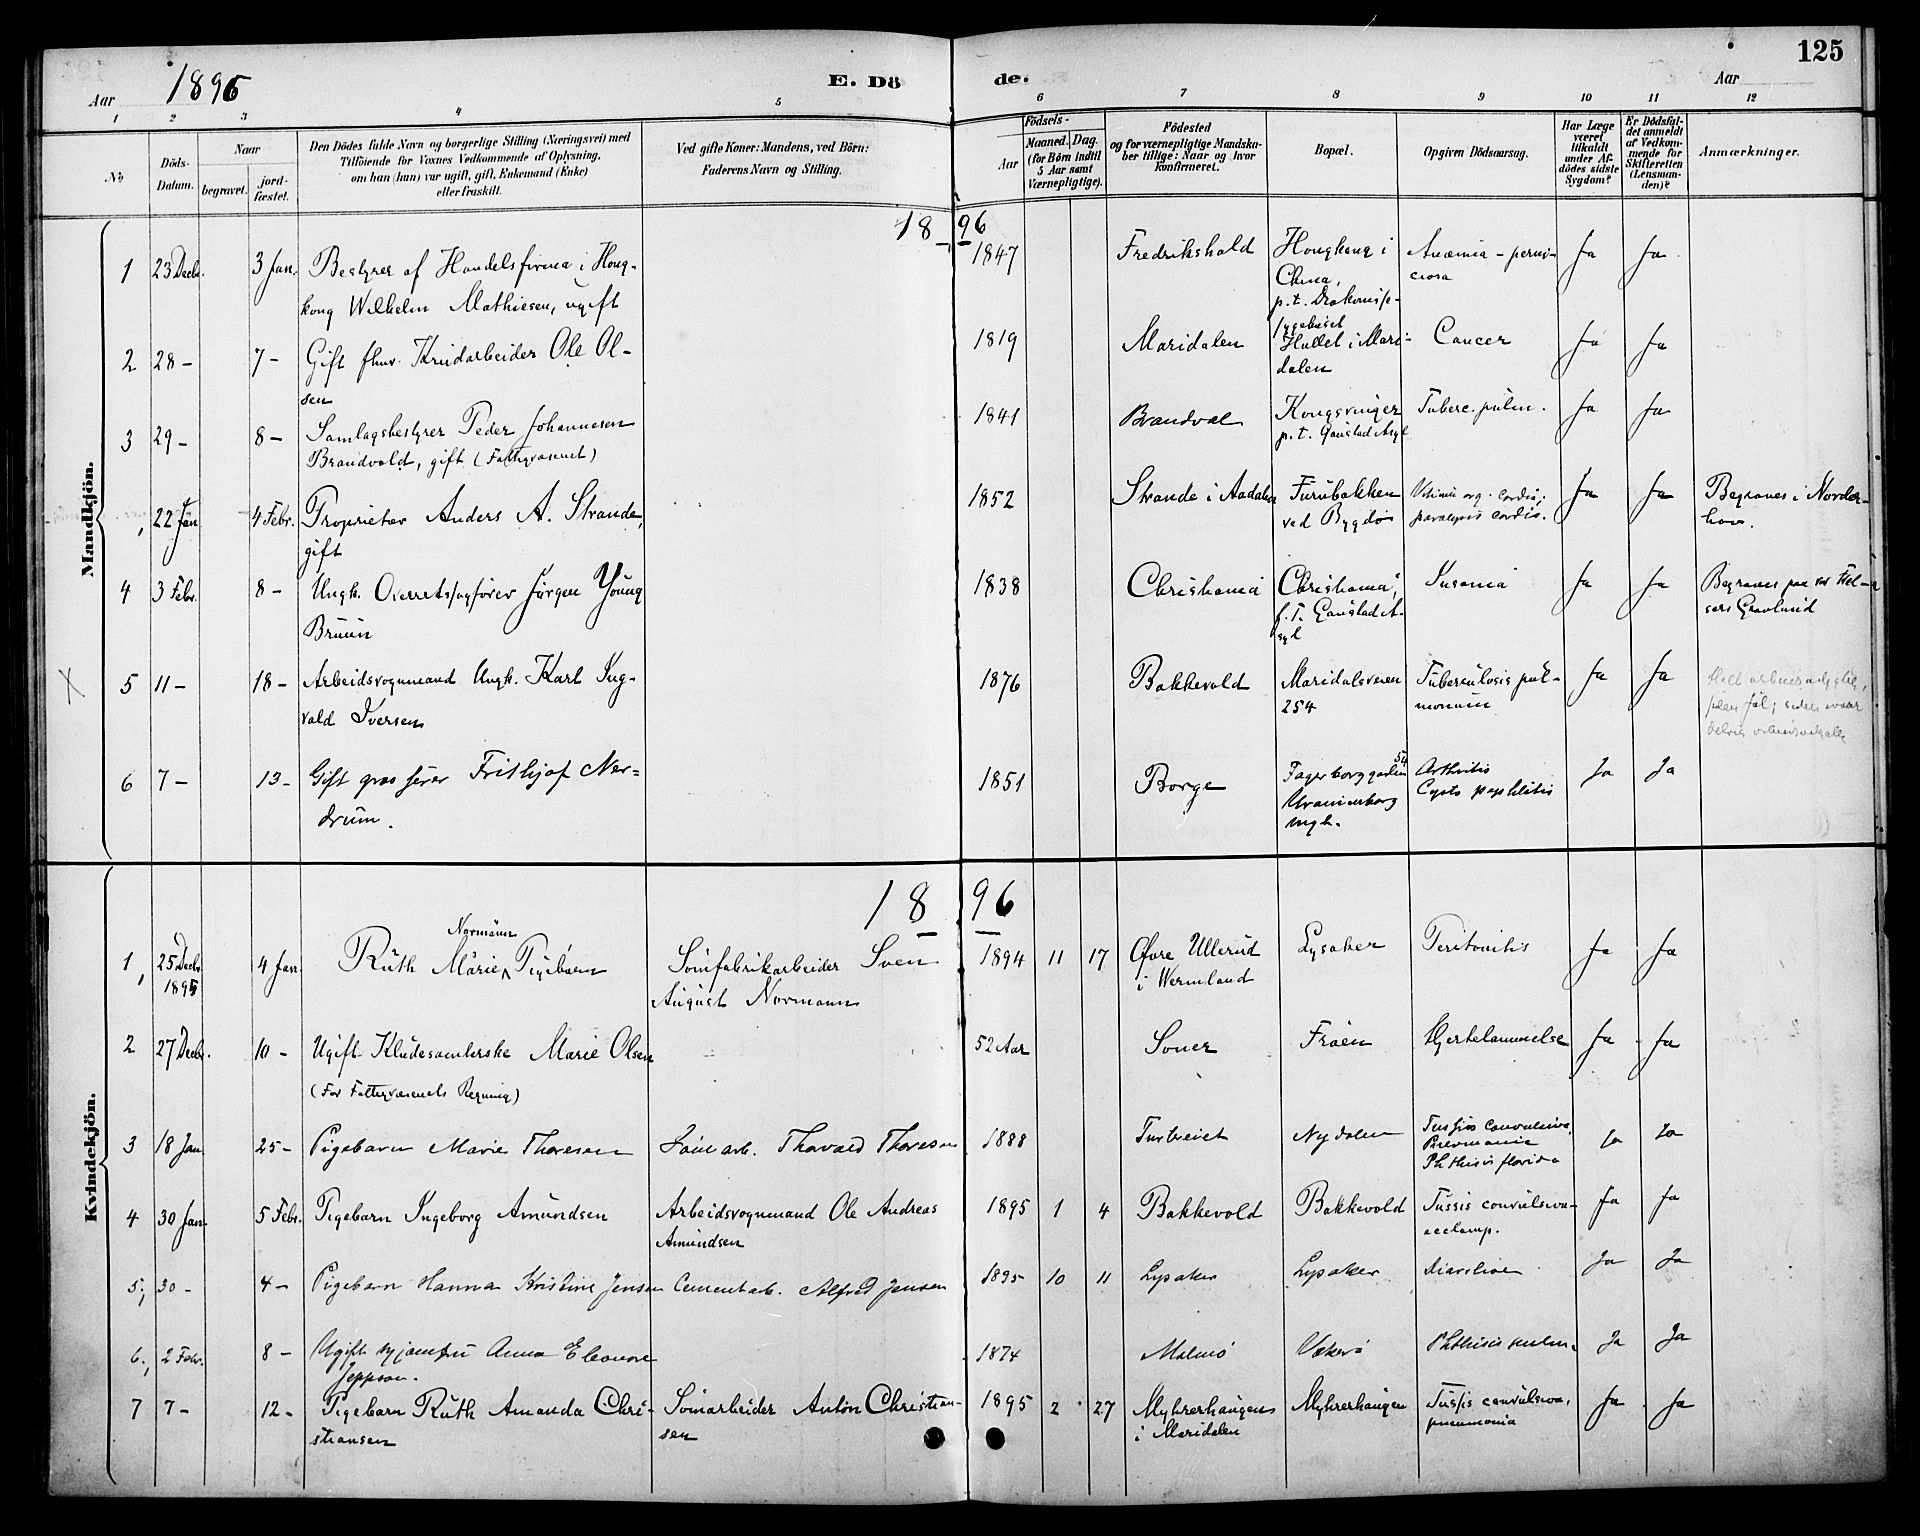 Aar 1896 E. Dö de. Aar 125
1 2 3 4 5 6 7 8 9 10 11 12
No
Döds-Datum.
Naar
begravet. jordfæstet.
Den Dödes fulde Navn og borgerlige Stilling (Næringsvei) med
Tilföiende for Voxnes Vedkommende af Oplysning,
om han (hun) var ugift, gift, Enkemand (Enke)
eller fraskilt.
Ved gifte Koner: Mandens, ved Börn:
Faderens Navn og Stilling.
Födsels-
Aar Maaned. Dag.
(for Börn indtil
5 Aar samt
Værnepligtige).
Födested
og for værnepligtige Mandskaber tillige: Naar og hvor
konfirmeret.
Bopæl.
Opgiven Dödsaarsag.
Har Læge
været
tilkaldt
under Afdödes sidste
Sygdom?
Er Dödsfaldet anmeldt
af Vedkommende for
Skifteretten
(Lensmanden)?
Anmærkninger.
Mandkjön.
18 96
1 23 Decbr. 3 Jan. Bestyrer af Handelsfirma i Hong- 1847 Fredrikshald Hongkong i Anæmia - perni- Ja Ja
kong Wilhelm Mathiesen, ugift China, ciosa
p.t.
sygehuset
2 28 - 7 - Gift fhv. Krudarbeider Ole Ol- 1819 Maridalen i Mari- Cancer Ja Ja
sen dalen
3 29 - 8 - Samlagsbestyrer Peder Johannesen 1841 Brandval Kongsvinger Tuberc. pulm. Ja Ja
Brandvold, gift (Fattigvæsenet) p.t. Gaustad Asyl
, 22 Jan 4 Febr. Proprietær Anders A. Strande, 1852 Strande i Aadalen Furubakken Vitium org. cordis, Ja Ja Begraves i Norder-
gift ved Bygdø paralysis cordis. hov.
4 3 Febr. 8 - Ungk. Overretssagfører Jürgen Young 1838 Christiania Christiania, Ja Ja Begraves paa vor Frel-
Bruun p.T. Gaustad A- sers Gravlund
syl
X 5 11 - 18 - Arbeidsvognmand Ungk. Karl Ing- 1876 Bakkevold Maridalsveien Tuberculosis pul- Ja Ja
vald Iversen 254 monum
6 7 - 13 - Gift grosserer Frithjof Ner- 1851 Borge Fagerborggaden 54 Arthritis Ja Ja
drum. Uranienborg Cysto
mgh.
Kvindekjön.
18 96
Normann
1, 25 Decbr. 4 Jan. Ruth Marie ^ Pigebarn Soinfabrikarbeider Sven 1894 11 17 Øvre Ullerud Lysaker Peritonitis Ja Ja
1895 August Normann i Wermland
2 27 Decbr. 10 - Ugift Kludesamlerske Marie Olsen 52 Aar Soner Frøen Hjertelammelse Ja Ja
(For Fattigvæsenets Regning)
3 18 Jan. 25 - Pigebarn Marie Thoresen Thorvald Thoresen 1888 Turbreiet Nydalen Tussis convulsiva, Ja Ja
Pnevmonie
Phthisis florida
4 30 Jan. 5 Febr. Pigebarn Ingeborg Amundsen Arbeidsvognmand Ole Andreas 1895 1 4 Bakkevold Bakkevold Tussis convulsiva - Ja Ja
Amundsen ecclamp.
5, 30 - 4 - Pigebarn Hanna Kristine Jensen Cementarb. Alfred Jensen 1895 10 11 Lysaker Lysaker Diarrhoe Ja Ja
6., 2 Febr. 8 - Ugift syjomfru Anna Eleonore 1874 Malmø Vækerø Phthisis pulm. Ja Ja
Jeppson.
7 7 - 12 - Pigebarn Ruth Amanda Chri- Soinarbeider Anton Christian- 1895 2 27 Myhrerhaugen Myhrerhaugen Tussis convulsiva, Ja Ja
stiansen sen i Maridalen pneumonia